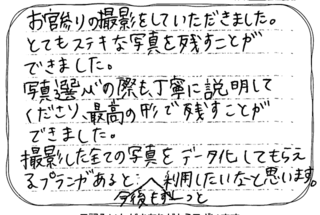 お宮参りの撮影をしていただきました。
とてもステキな写真を残すことが
できました。
写真選びの際も、丁寧に説明して
くださり、最高の形で残すことが
できました。
撮影した全ての写真をデータ化してもらえ
るプランがあると、利用したいなと思います。
今後もずーっと